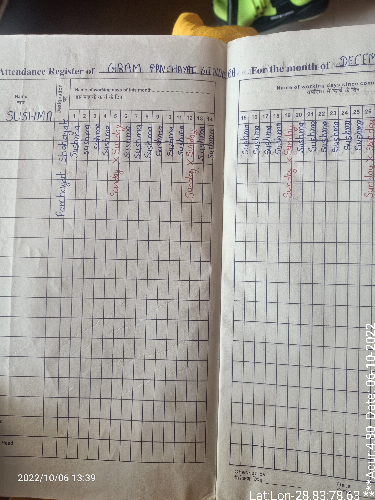 Attendance Register of GRAM PANCHAYAT
For the month of DECEM
Name of working days of this month
Name
नाम
1 2 3 4 5 6 7 8 9 10 11 12 13 14
15 16 17 18 19 20 21 22 23 24 25 26
SUSHMA
Panchayat Shahayak
Sushma Sushma Sushma Sushma Sunday X Sunday Sushma Sushma Sushma Sushma Sushma Sushma Sunday X Sunday Sushma Sushma
Sushma Sushma Sushma Sushma Sunday X Sunday Sushma Sushma Sushma Sushma Sushma Sushma Sunday X
2022/10/06 13:39
Lat:Lon-28.83:78.63
***Acur:4.80 Date: 06-10-2022